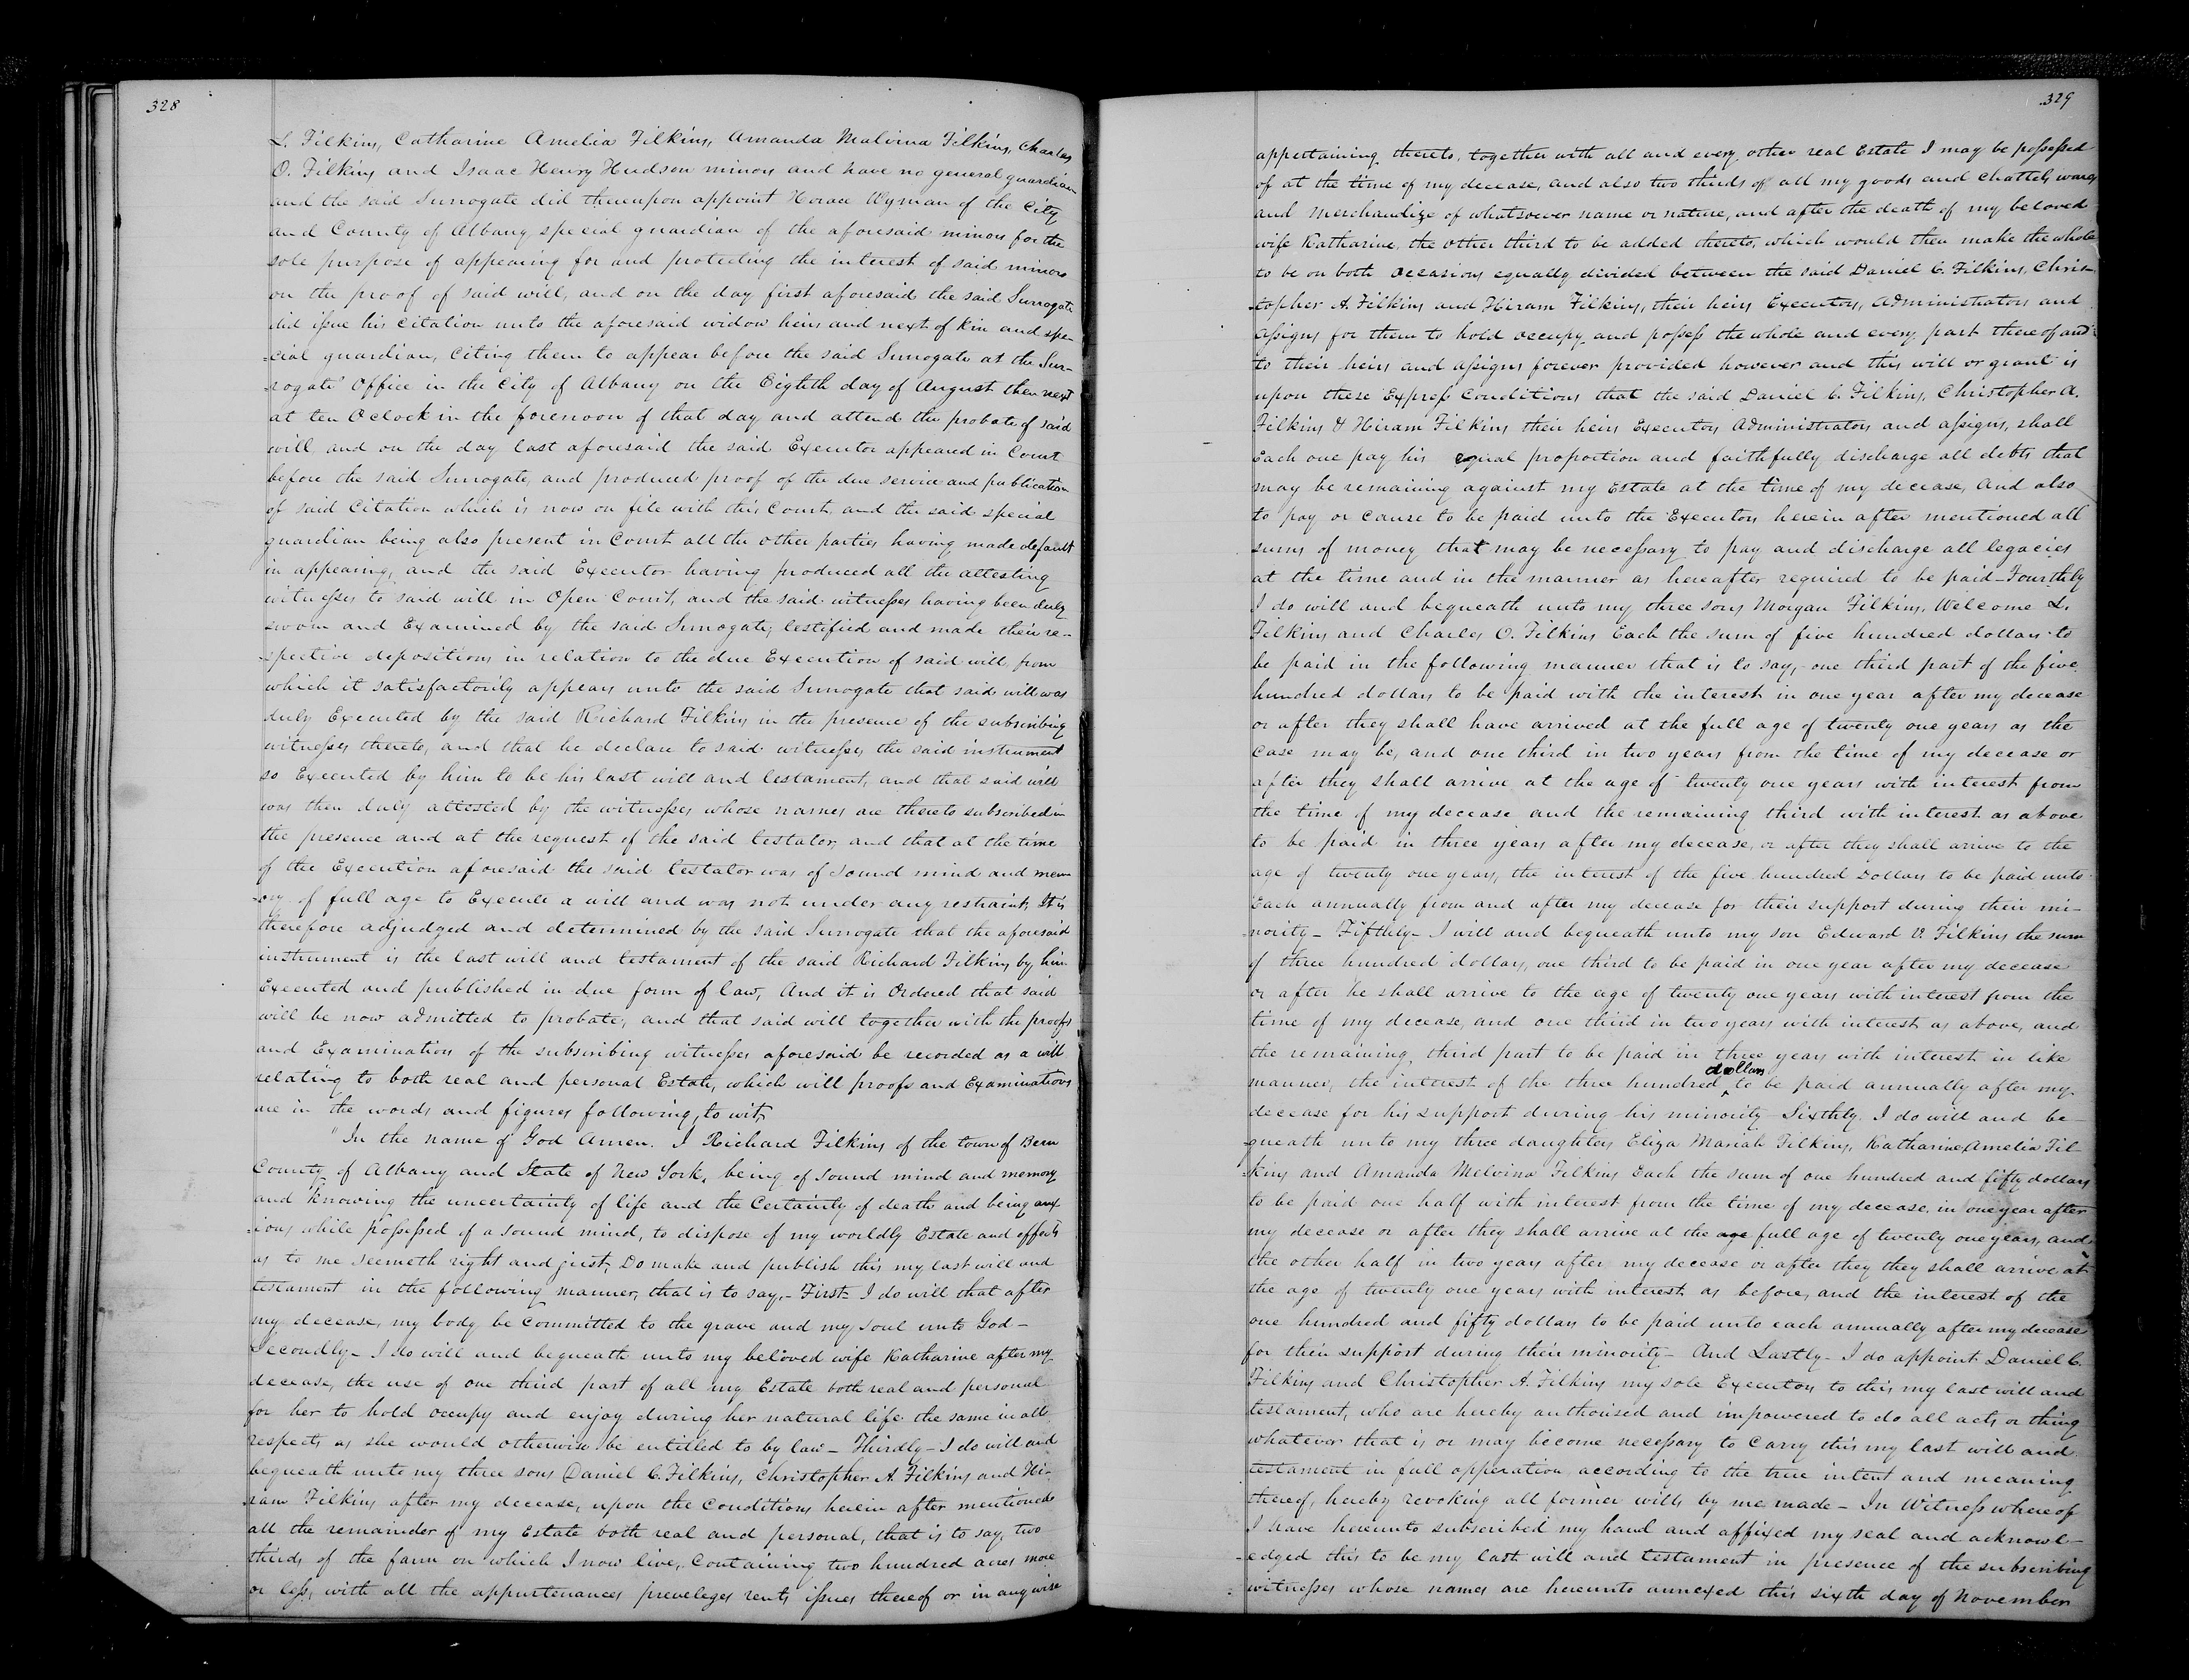 328
L. Filkins, Catharine Amelia Filkins, Amanda Malvina Filkins, Charles
O. Filkins and Isaac Henry Hudson minors and have no general guardian
and the said Surrogate did thereupon appoint Horace Wyman of the City
and County of Albany special guardian of the aforesaid minors for the
sole purpose of appearing for and protecting the interest of said minors
on the proof of said will, and on the day first aforesaid the said Surrogate
did issue his citation unto the aforesaid widow heirs and next of kin and spe-
-cial guardian, citing them to appear before the said Surrogate at the Sur-
-rogate' Office in the City of Albany on the Eighth day of August then next
at ten Oclock in the forenoon of that day and attend the probate of said
will and on the day last aforesaid the said Executor appeared in Court
before the said Surrogate, and produced proof of the due service and publication
of said Citation which is now on file with this Court, and the said special
guardian being also present in Court all the other parties having made default
in appearing, and the said Executor having produced all the attesting
witnesses to said will in Open Court, and the said witnesses having been duly
sworn and Examined by the said Surrogate, testified and made their re-
-spective depositions in relation to the due Execution of said will, from
which it satisfactorily appears unto the said Surrogate that said will was
duly Executed by the said Richard Filkins in the presence of the subscribing
witnesses thereto, and that he declare to said witnesses the said instrument
so Executed by him to be his last will and testament, and that said will
was then duly attested by the witnesses whose names are thereto subscribed in
the presence and at the request of the said testator, and that at the time
of the Execution aforesaid the said testator was of sound mind and mem-
-ory of full age to Execute a will and was not under any restraint, It is
therefore adjudged and determined by the said Surrogate that the aforesaid
instrument is the last will and testament of the said Richard Filkins by him
Executed and published in due form of law, And it is Ordered that said
will be now admitted to probate, and that said will together with the proofs
and Examination of the subscribing witnesses aforesaid be recorded as a will
relating to both real and personal Estate, which will proofs and Examinations
are in the words and figures following, to wit,
"In the name of God Amen. I Richard Filkins of the town of Bern
County of Albany and State of New York, being of sound mind and memory
and knowing the uncertainty of life and the Certainty of death and being anx
-ious while possessed of a sound mind, to dispose of my worldly Estate and effects
as to me seemeth right and just, Do make and publish this my last will and
testament in the following manner, that is to say,- First- I do will that after
my decease, my body be committed to the grave and my soul unto God-
Secondly- I do will and bequeath unto my beloved wife Katharine after my
decease, the use of one third part of all my Estate both real and personal
for her to hold occupy and enjoy during her natural life the same in all
respects as she would otherwise be entitled to by law- Thirdly- I do will and
bequeath unto my three sons Daniel C. Filkins, Christopher A. Filkins and Hi-
-ram Filkins after my decease, upon the Conditions herein after mentioned
all the remainder of my Estate both real and personal, that is to say, two
thirds of the farm on which I now live, Containing two hundred acres more
or less, with all the appurtenances preveleges rents issues thereof or in any wise
329
appertaining thereto, together with all and every other real Estate I may be possessed
of at the time of my decease, and also two thirds of all my goods and chattels wares
and Merchandize of whatsoever name or nature, and after the death of my beloved
wife Katharine, the other third to be added thereto, which would then make the whole
to be on both Occasions equally divided between the said Daniel C. Filkins, Chris-
-topher A. Filkins and Hiram Filkins, their heirs Executors, Administrators and
Assigns for them to hold occupy and possess the whole and every part thereof and
to their heirs and assigns forever provided however and this will or grant is
upon these Express Conditions that the said Daniel C. Filkins, Christopher A.
Filkins & Hiram Filkins their heirs Executors Administrators and assigns, shall
Each one pay his equal proportion and faithfully discharge all debts that
may be remaining against my Estate at the time of my decease, And also
to pay or cause to be paid unto the Executors herein after mentioned all
sums of money that may be necessary to pay and discharge all legacies
at the time and in the manner as hereafter required to be paid- Fourthly
I do will and bequeath unto my three sons Morgan Filkins, Welcome L.
Filkins and Charles O. Filkins Each the sum of five hundred dollars to
be paid in the following manner that is to say,- one third part of the five
hundred dollars to be paid with the interest in one year after my decease
or after they shall have arrived at the full age of twenty one years as the
case may be, and one third in two years from the time of my decease or
after they shall arrive at the age of twenty one years with interest from
the time of my decease and the remaining third with interest as above
to be paid in three years after my decease, or after they shall arrive to the
age of twenty one years, the interest of the five hundred Dollars to be paid unto
Each annually from and after my decease for their support during their mi-
-nority- Fifthly- I will and bequeath unto my son Edward V. Filkins the sum
of three hundred dollars, one third to be paid in one year after my decease
or after he shall arrive to the age of twenty one years with interest from the
time of my decease, and one third in two years with interest as above, and
the remaining third part to be paid in three years with interest in like
manner, the interest of the three hundred dollars to be paid annually after my
decease for his support during his minority- Sixthly. I do will and be-
-queath unto my three daughters Eliza Mariah Filkins, Katharine Amelia Fil-
-kins and Amanda Melvina Filkins Each the sum of one hundred and fifty dollars
to be paid one half with interest from the time of my decease, in one year after
my decease or after they shall arrive at the age full age of twenty one years, and
the other half in two years after my decease or after they they shall arrive at
the age of twenty one years with interest as before, and the interest of the
one hundred and fifty dollars to be paid unto each annually after my decease
for their support during their minority- And Lastly- I do appoint Daniel C.
Filkins and Christopher A. Filkins my sole Executors to this my last will and
testament, who are hereby authorised and impowered to do all acts or thing
whatever that is or may become necessary to Carry this my last will and
testament in full opperation according to the true intent and meaning
thereof, hereby revoking all former wills by me made- In Witness whereof
I have hereunto subscribed my hand and affixed my seal and acknowl-
-edged this to be my last will and testament in presence of the subscribing
witnesses whose names are hereunto annexed this sixth day of November